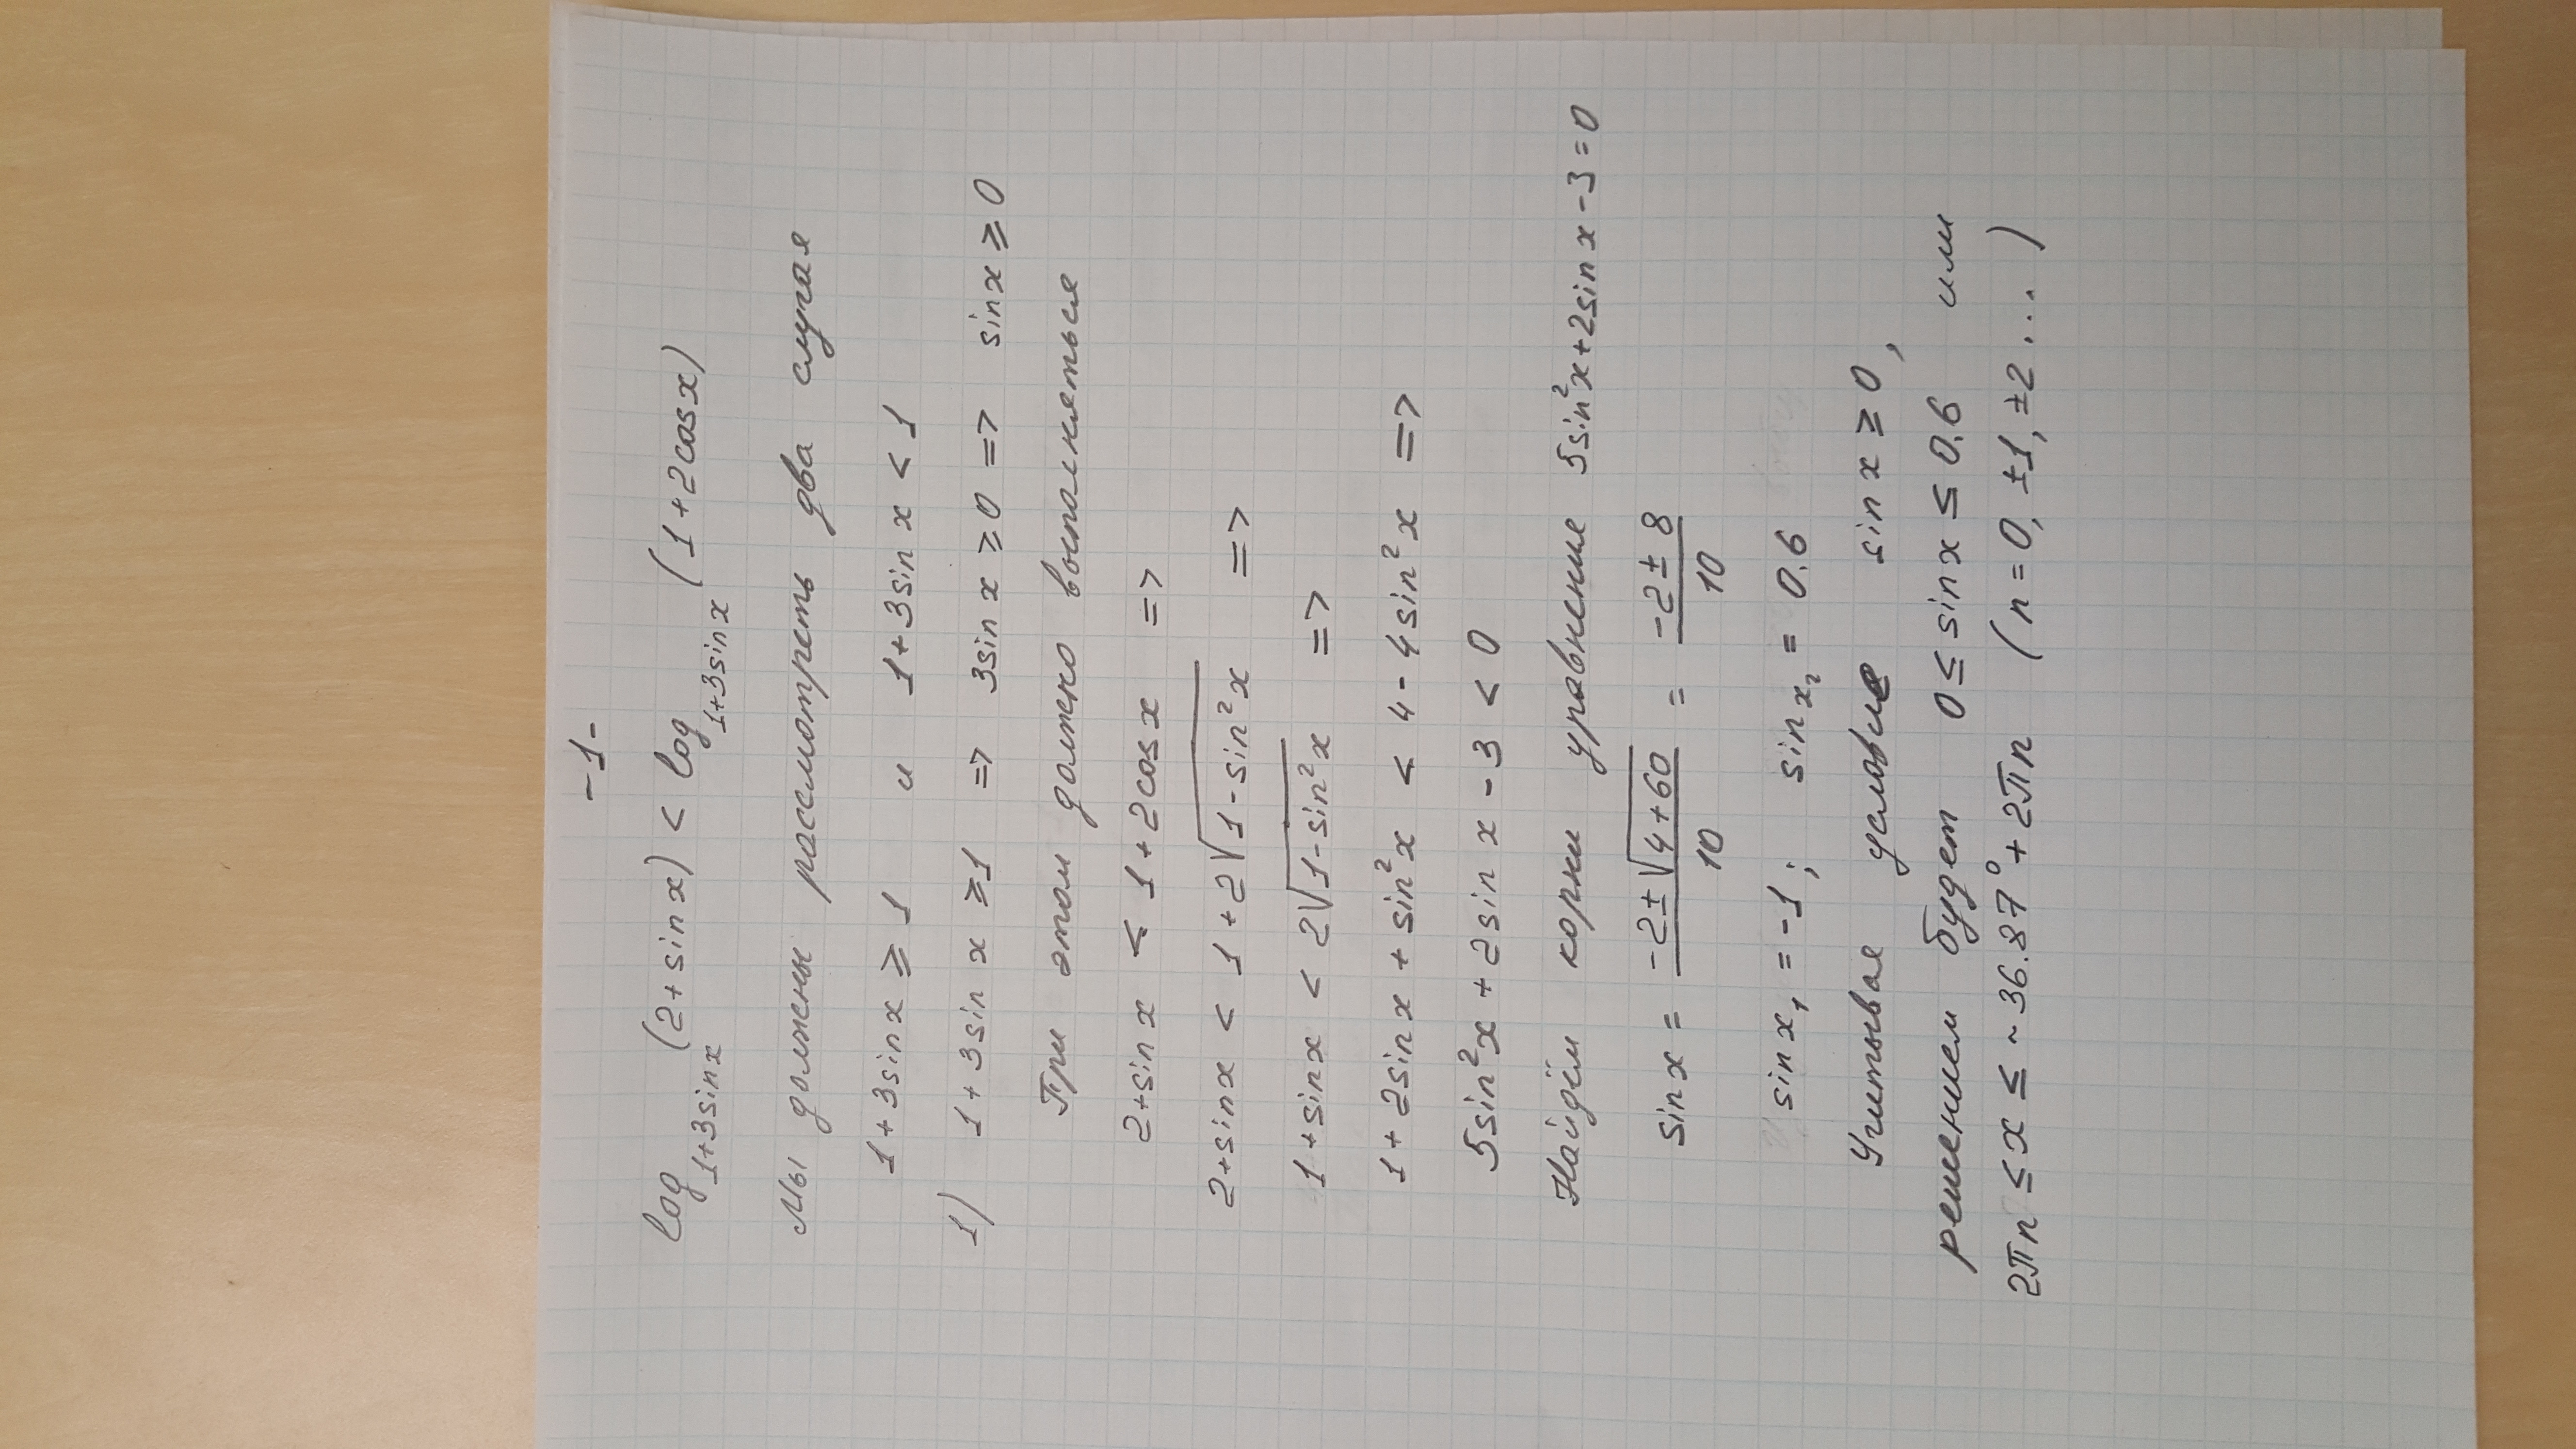 -1-
log₁₊₃ₛᵢₙₓ (2+sin x) < log₁₊₃ₛᵢₙₓ (1+2cos x)
Мы должны рассмотреть два случая
1+3sin x ⩾ 1 и 1+3sin x < 1
1) 1+3sin x ⩾ 1 => 3sin x ⩾ 0 => sin x ⩾ 0
При этом должно выполняться
2+sin x < 1+2cos x =>
2+sin x < 1+2√(1-sin²x) =>
1+sin x < 2√(1-sin²x) =>
1+2sin x + sin²x < 4-4sin²x =>
5sin²x + 2sin x - 3 < 0
Найдём корни уравнения 5sin²x+2sin x-3=0
sin x = (-2±√(4+60))/10 = (-2±8)/10
sin x₁ = -1; sin x₂ = 0.6
Учитывая условие sin x ⩾ 0,
решением будет 0 ≤ sin x ≤ 0.6 или
2πn ≤ x ≤ ~36.87° + 2πn (n=0, ±1, ±2...)